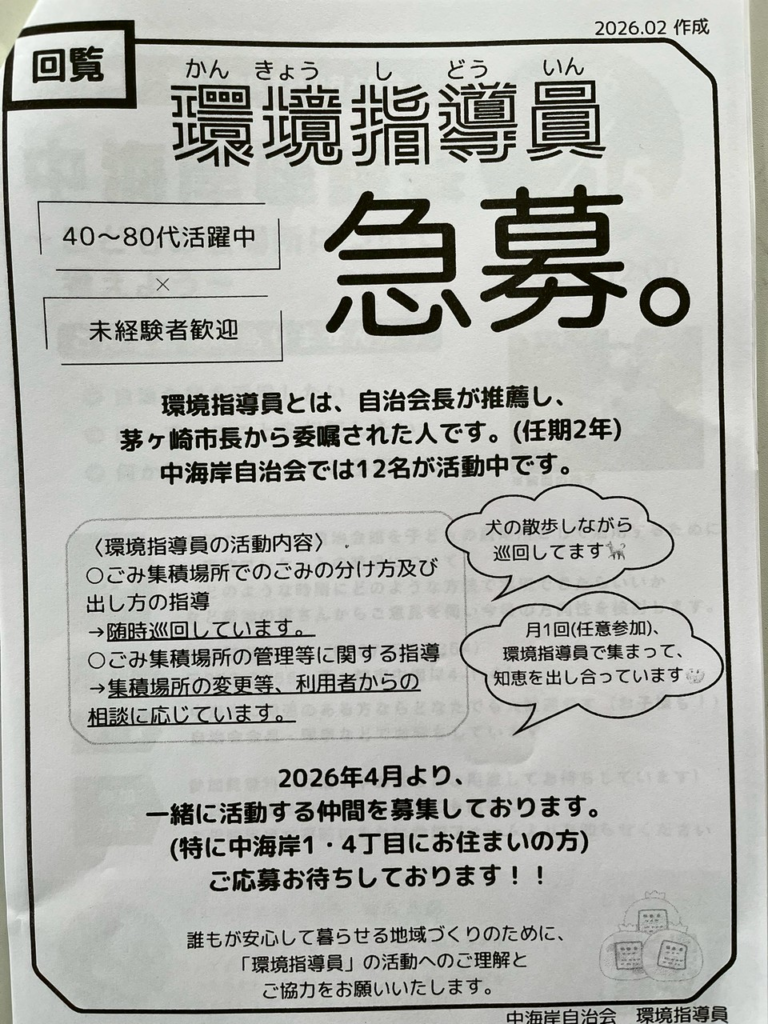 2026.02 作成
回覧
かん きょう し どう いん
環境指導員
急募。
40～80代活躍中
×
未経験者歓迎
環境指導員とは、自治会長が推薦し、
茅ヶ崎市長から委嘱された人です。(任期2年)
中海岸自治会では12名が活動中です。
犬の散歩しながら
巡回してます🐕
〈環境指導員の活動内容〉
○ごみ集積場所でのごみの分け方及び
出し方の指導
→随時巡回しています。
○ごみ集積場所の管理等に関する指導
→集積場所の変更等、利用者からの
相談に応じています。
月1回(任意参加)、
環境指導員で集まって、
知恵を出し合っています
2026年4月より、
一緒に活動する仲間を募集しております。
(特に中海岸1・4丁目にお住まいの方)
ご応募お待ちしております！！
誰もが安心して暮らせる地域づくりのために、
「環境指導員」の活動へのご理解と
ご協力をお願いいたします。
中海岸自治会 環境指導員